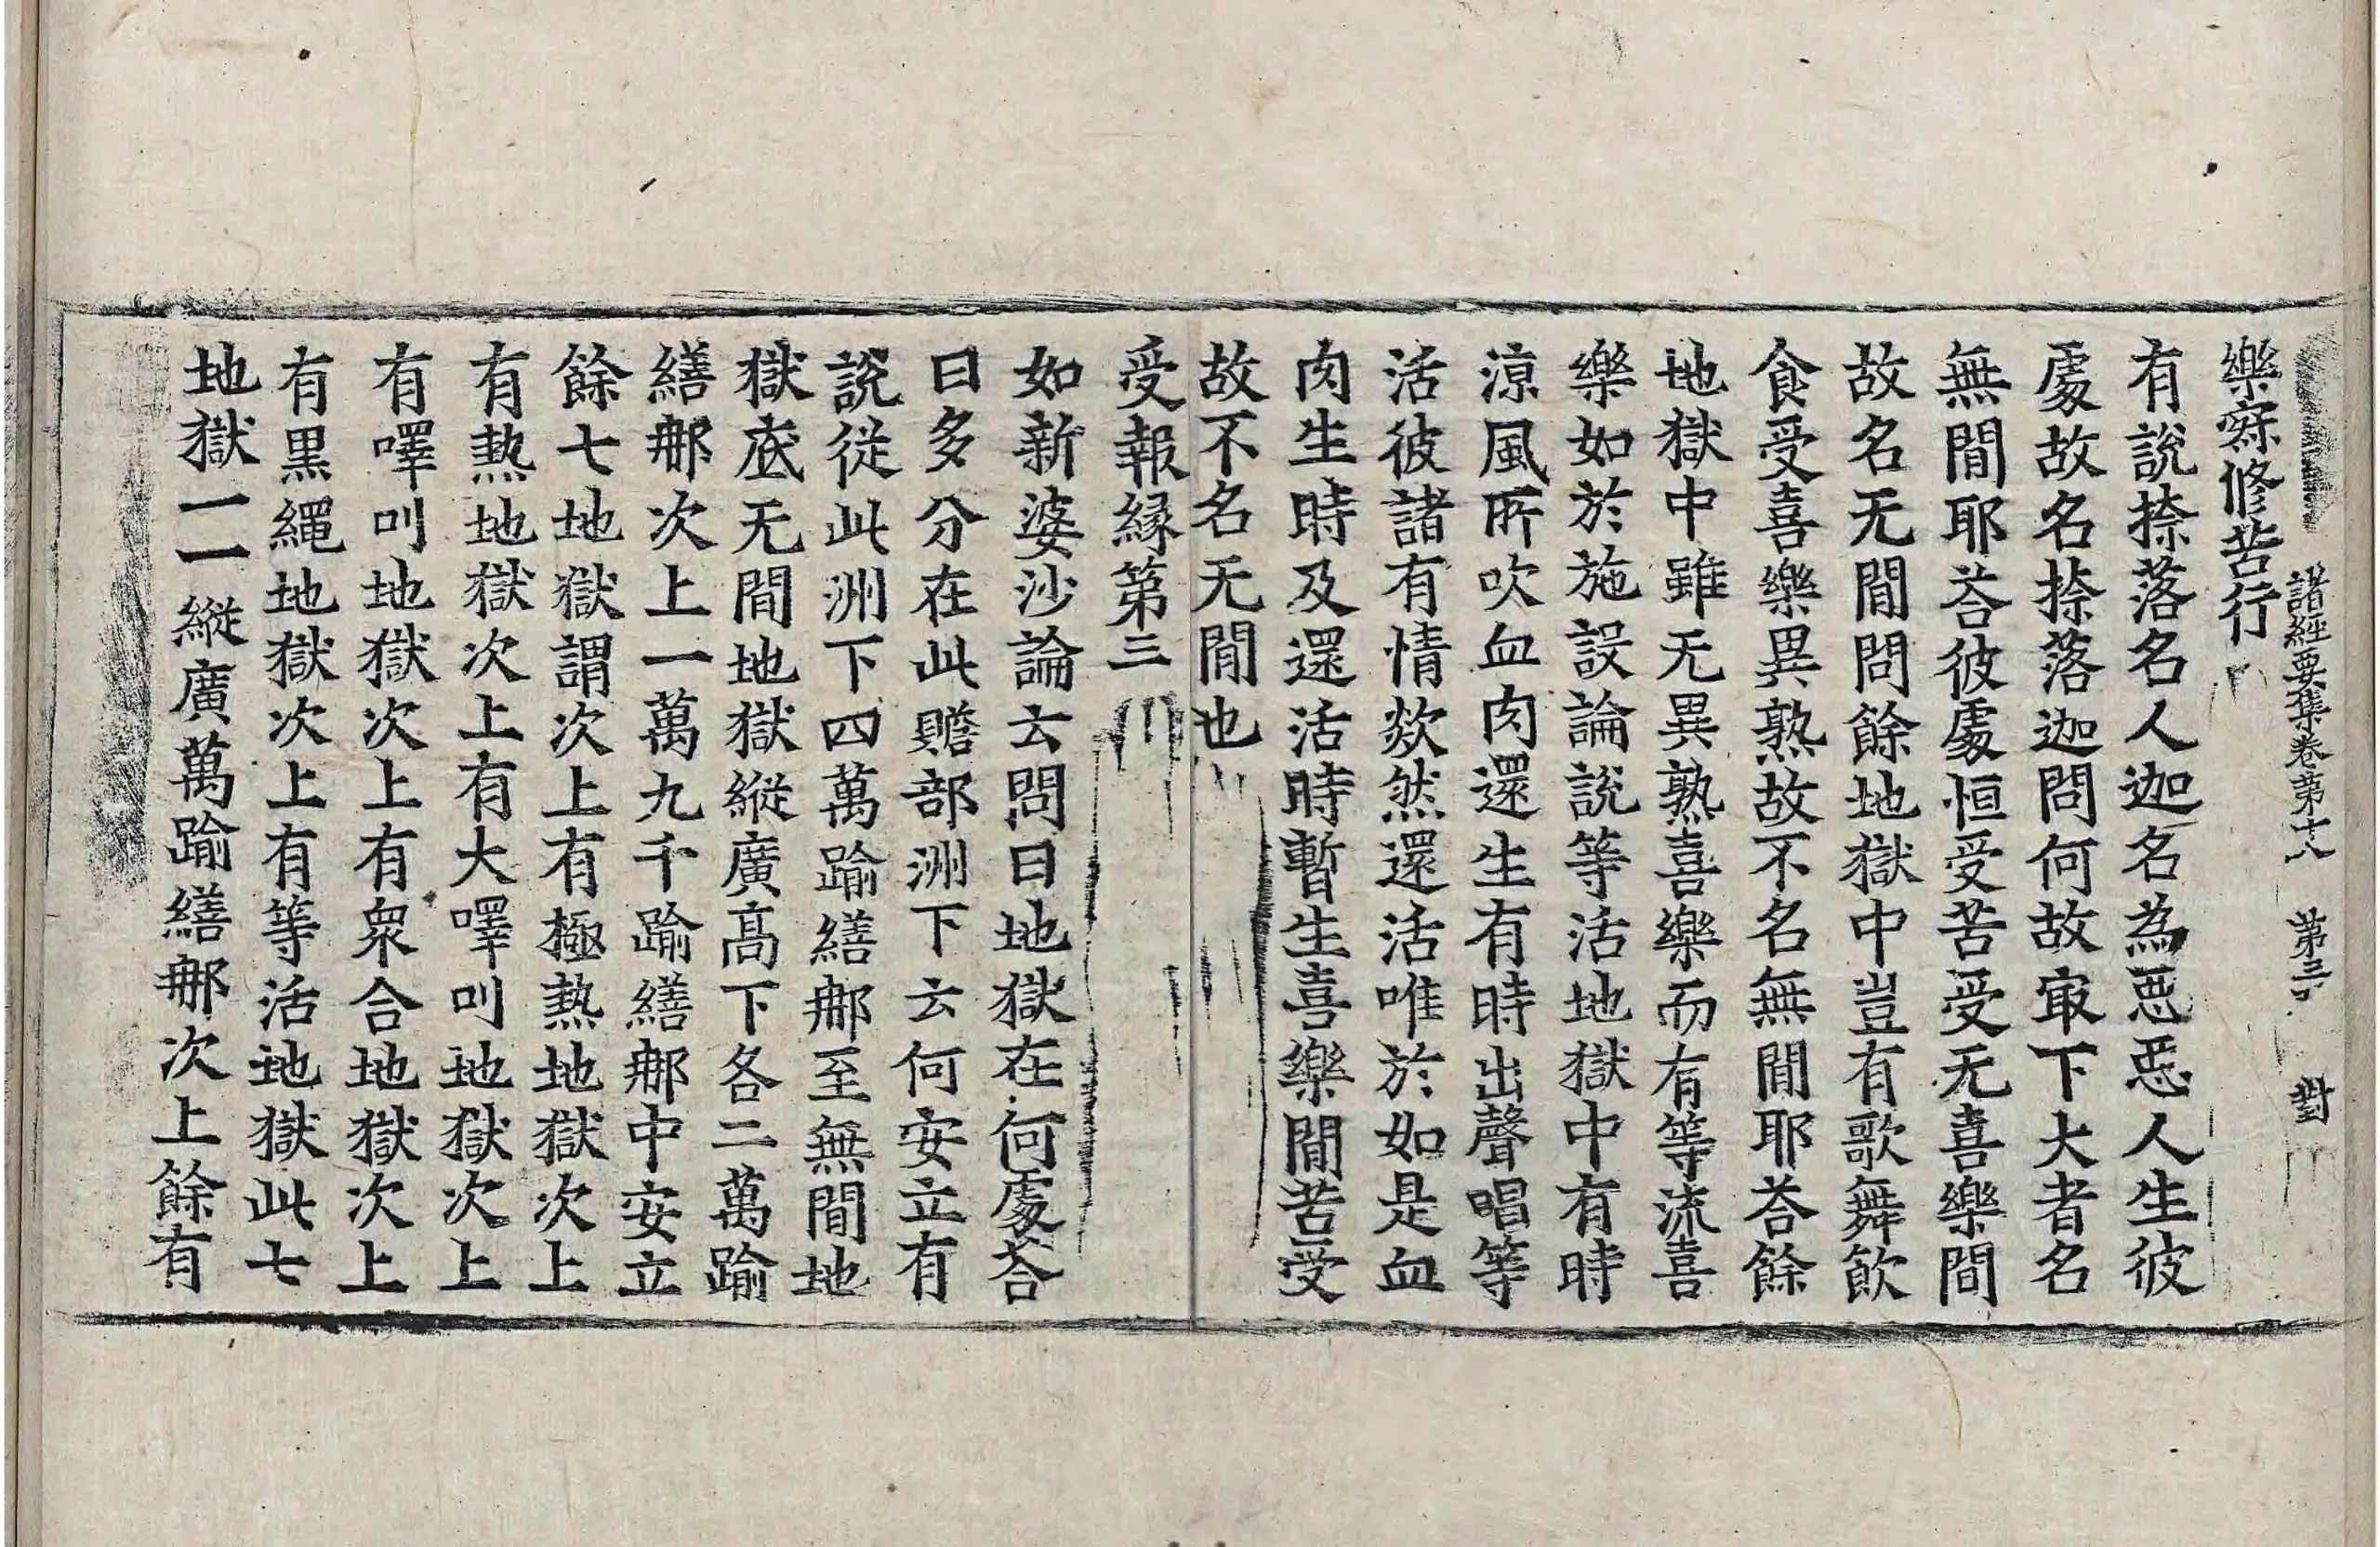 諸經要集卷第十八 第三 對
樂寂修苦行
有說捺落名人迦名為惡惡人生彼
處故名捺落迦問何故冣下大者名
無間耶荅彼處恒受苦受无喜樂間
故名无間問餘地獄中豈有歌舞飲
食受喜樂異熟故不名無間耶荅餘
地獄中雖无異熟喜樂而有等流喜
樂如於施設論說等活地獄中有時
涼風所吹血肉還生有時出聲唱等
活彼諸有情欻然還活唯於如是血
肉生時及還活時暫生喜樂間苦受
故不名无間也
受報緣第三
如新婆沙論云問曰地獄在何處荅
曰多分在此贍部洲下云何安立有
說從此洲下四萬踰繕那至無間地
獄底无間地獄縱廣高下各二萬踰
繕那次上一萬九千踰繕那中安立
餘七地獄謂次上有極熱地獄次上
有熱地獄次上有大嘷叫地獄次上
有嘷叫地獄次上有衆合地獄次上
有黑繩地獄次上有等活地獄此七
地獄一一縱廣萬踰繕那次上餘有